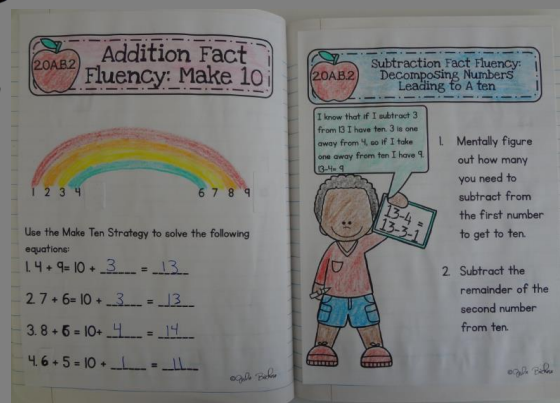 2.OA.B.2
Addition Fact
Fluency: Make 10
1 2 3 4 6 7 8 9
Use the Make Ten Strategy to solve the following
equations:
1. 4 + 9= 10 + 3 = 13
2. 7 + 6= 10 + 3 = 13
3. 8 + 6 = 10+ 4 = 14
4. 6 + 5 = 10 + 1 = 11
2.OA.B.2
Subtraction Fact Fluency:
Decomposing Numbers
Leading to A ten
I know that if I subtract 3
from 13 I have ten. 3 is one
away from 4, so if I take
one away from ten I have 9.
13-4= 9
13-4 =
13-3-1
1. Mentally figure
out how many
you need to
subtract from
the first number
to get to ten.
2. Subtract the
remainder of the
second number
from ten.